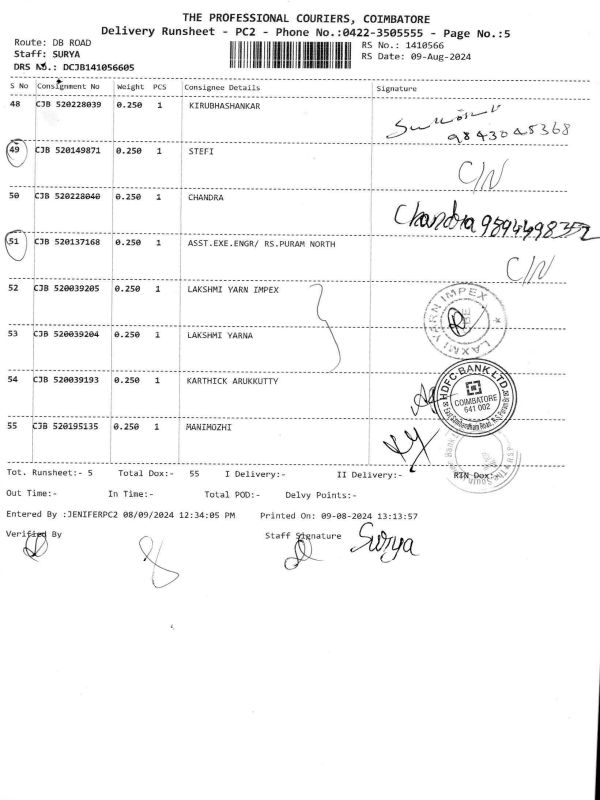 THE PROFESSIONAL COURIERS, COIMBATORE
Delivery Runsheet - PC2 - Phone No.:0422-3505555 - Page No.:5
Route: DB ROAD
Staff: SURYA
DRS NO.: DCJB141056605
RS No.: 1410566
RS Date: 09-Aug-2024
S No Consignment No Weight PCS Consignee Details Signature
48 CJB 520228039 0.250 1 KIRUBHASHANKAR
9843045368
49 CJB 520149871 0.250 1 STEFI C/N
50 CJB 520228040 0.250 1 CHANDRA Chandra
51 CJB 520137168 0.250 1 ASST.EXE.ENGR/ RS.PURAM NORTH C/N
52 CJB 520039205 0.250 1 LAKSHMI YARN IMPEX
LAXMI YARN IMPEX
53 CJB 520039204 0.250 1 LAKSHMI YARNA
54 CJB 520039193 0.250 1 KARTHICK ARUKKUTTY
HDFC BANK LTD.
COIMBATORE
641 002
55 CJB 520195135 0.250 1 MANIMOZHI
Tot. Runsheet:- 5 Total Dox:- 55 I Delivery:- II Delivery:- RTN Dox:-
Out Time:- In Time:- Total POD:- Delvy Points:-
Entered By :JENIFERPC2 08/09/2024 12:34:05 PM Printed On: 09-08-2024 13:13:57
Verified By Staff Signature Surya